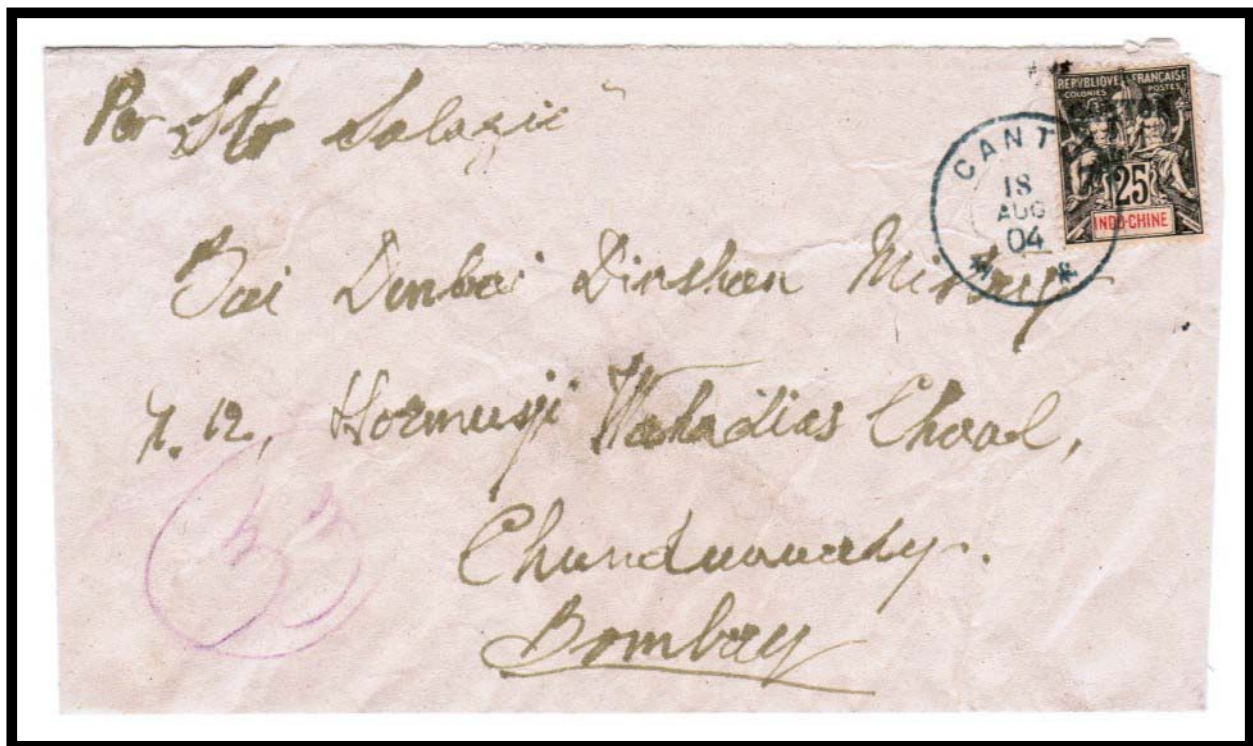 Per Str Salazie"
REPVBLIQVE FRANÇAISE
COLONIES POSTES
25
INDO-CHINE
CANT
18
AUG
04
Bai Dinbai Dinshaw Mistry
N. 12, Hormusji Wahadias Chaal,
Chundunwady.
Bombay